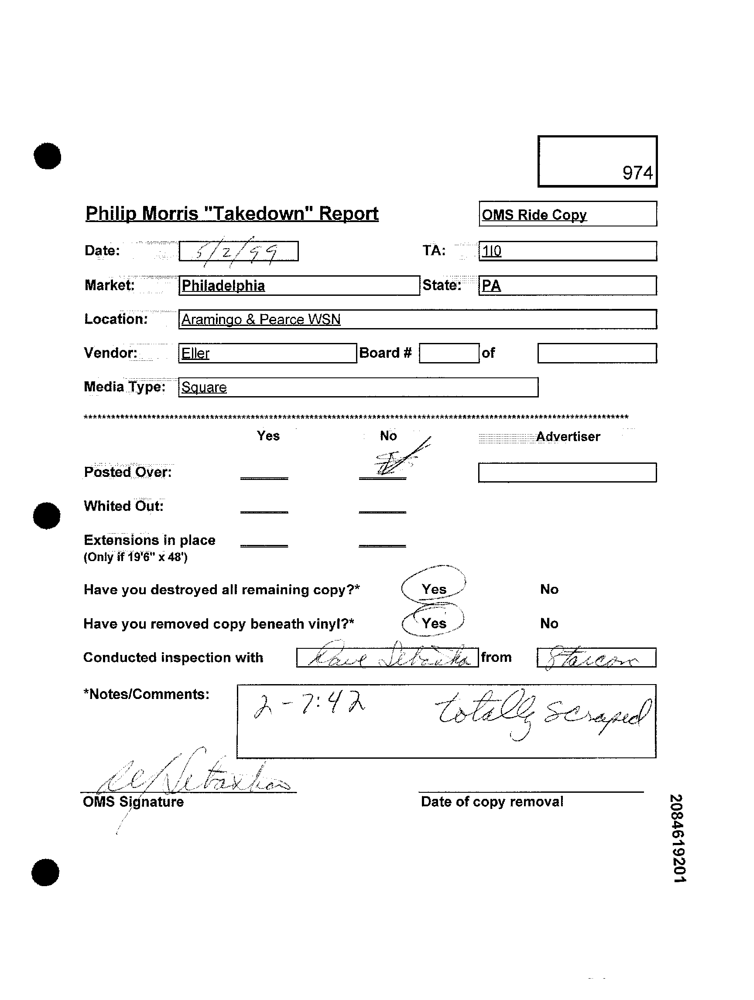 974
Philip Morris "Takedown" Report OMS Ride Copy
Date: 5/2/99 TA: 110
Market: Philadelphia State: PA
Location: Aramingo & Pearce WSN
Vendor: Eller Board # of
Media Type: Square
Yes No Advertiser
Posted Over:
Whited Out:
Extensions in place
(Only if 19'6" x 48')
Have you destroyed all remaining copy?* Yes No
Have you removed copy beneath vinyl?* Yes No
Conducted inspection with from Starcom
*Notes/Comments: 2-7:42 totally scraped
OMS Signature Date of copy removal
2084619201